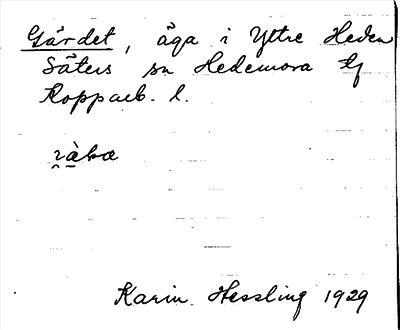 Gärdet, äga i Yttre Heden
Säters sn Hedemora tg
Kopparb. l.
Karin Hessling 1929